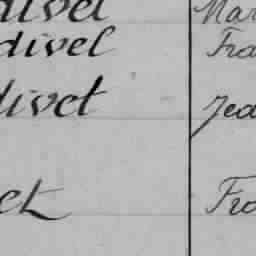 divel Mar
divel Fra
divet Jea
et Fra